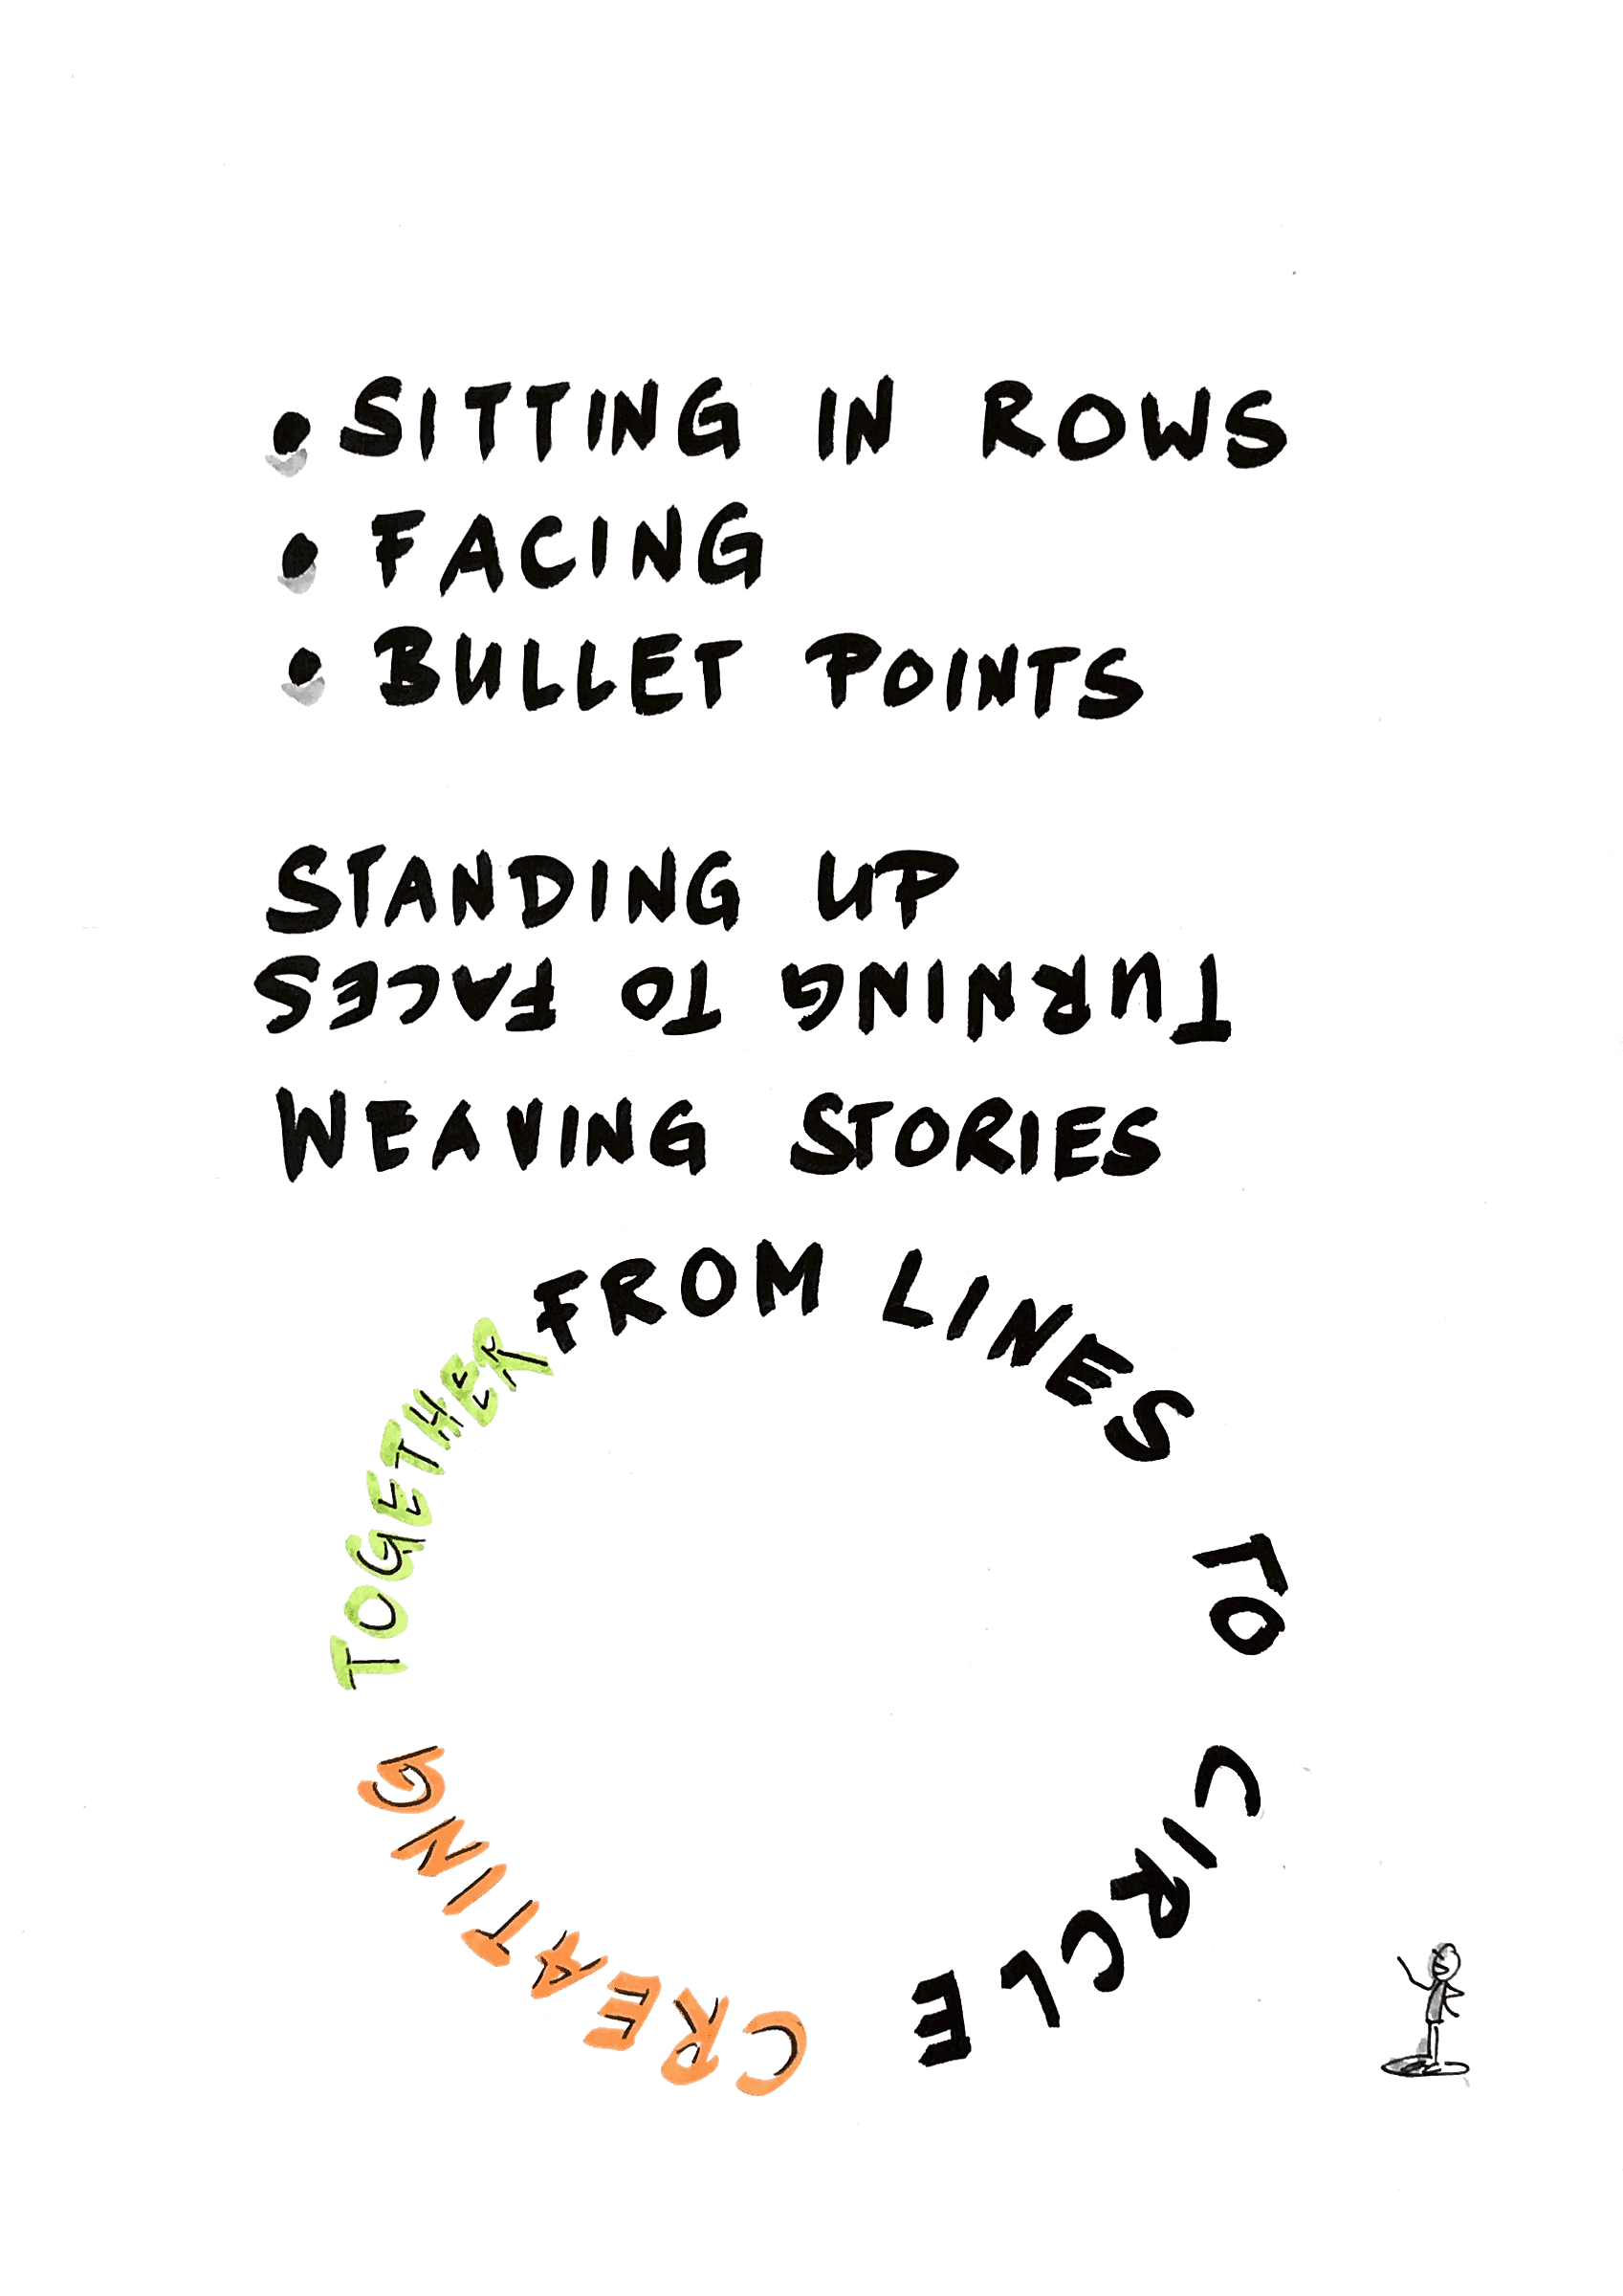 • SITTING IN ROWS
• FACING
• BULLET POINTS
STANDING UP
TURNING TO FACES
WEAVING STORIES
FROM LINES TO CIRCLE CREATING TOGETHER